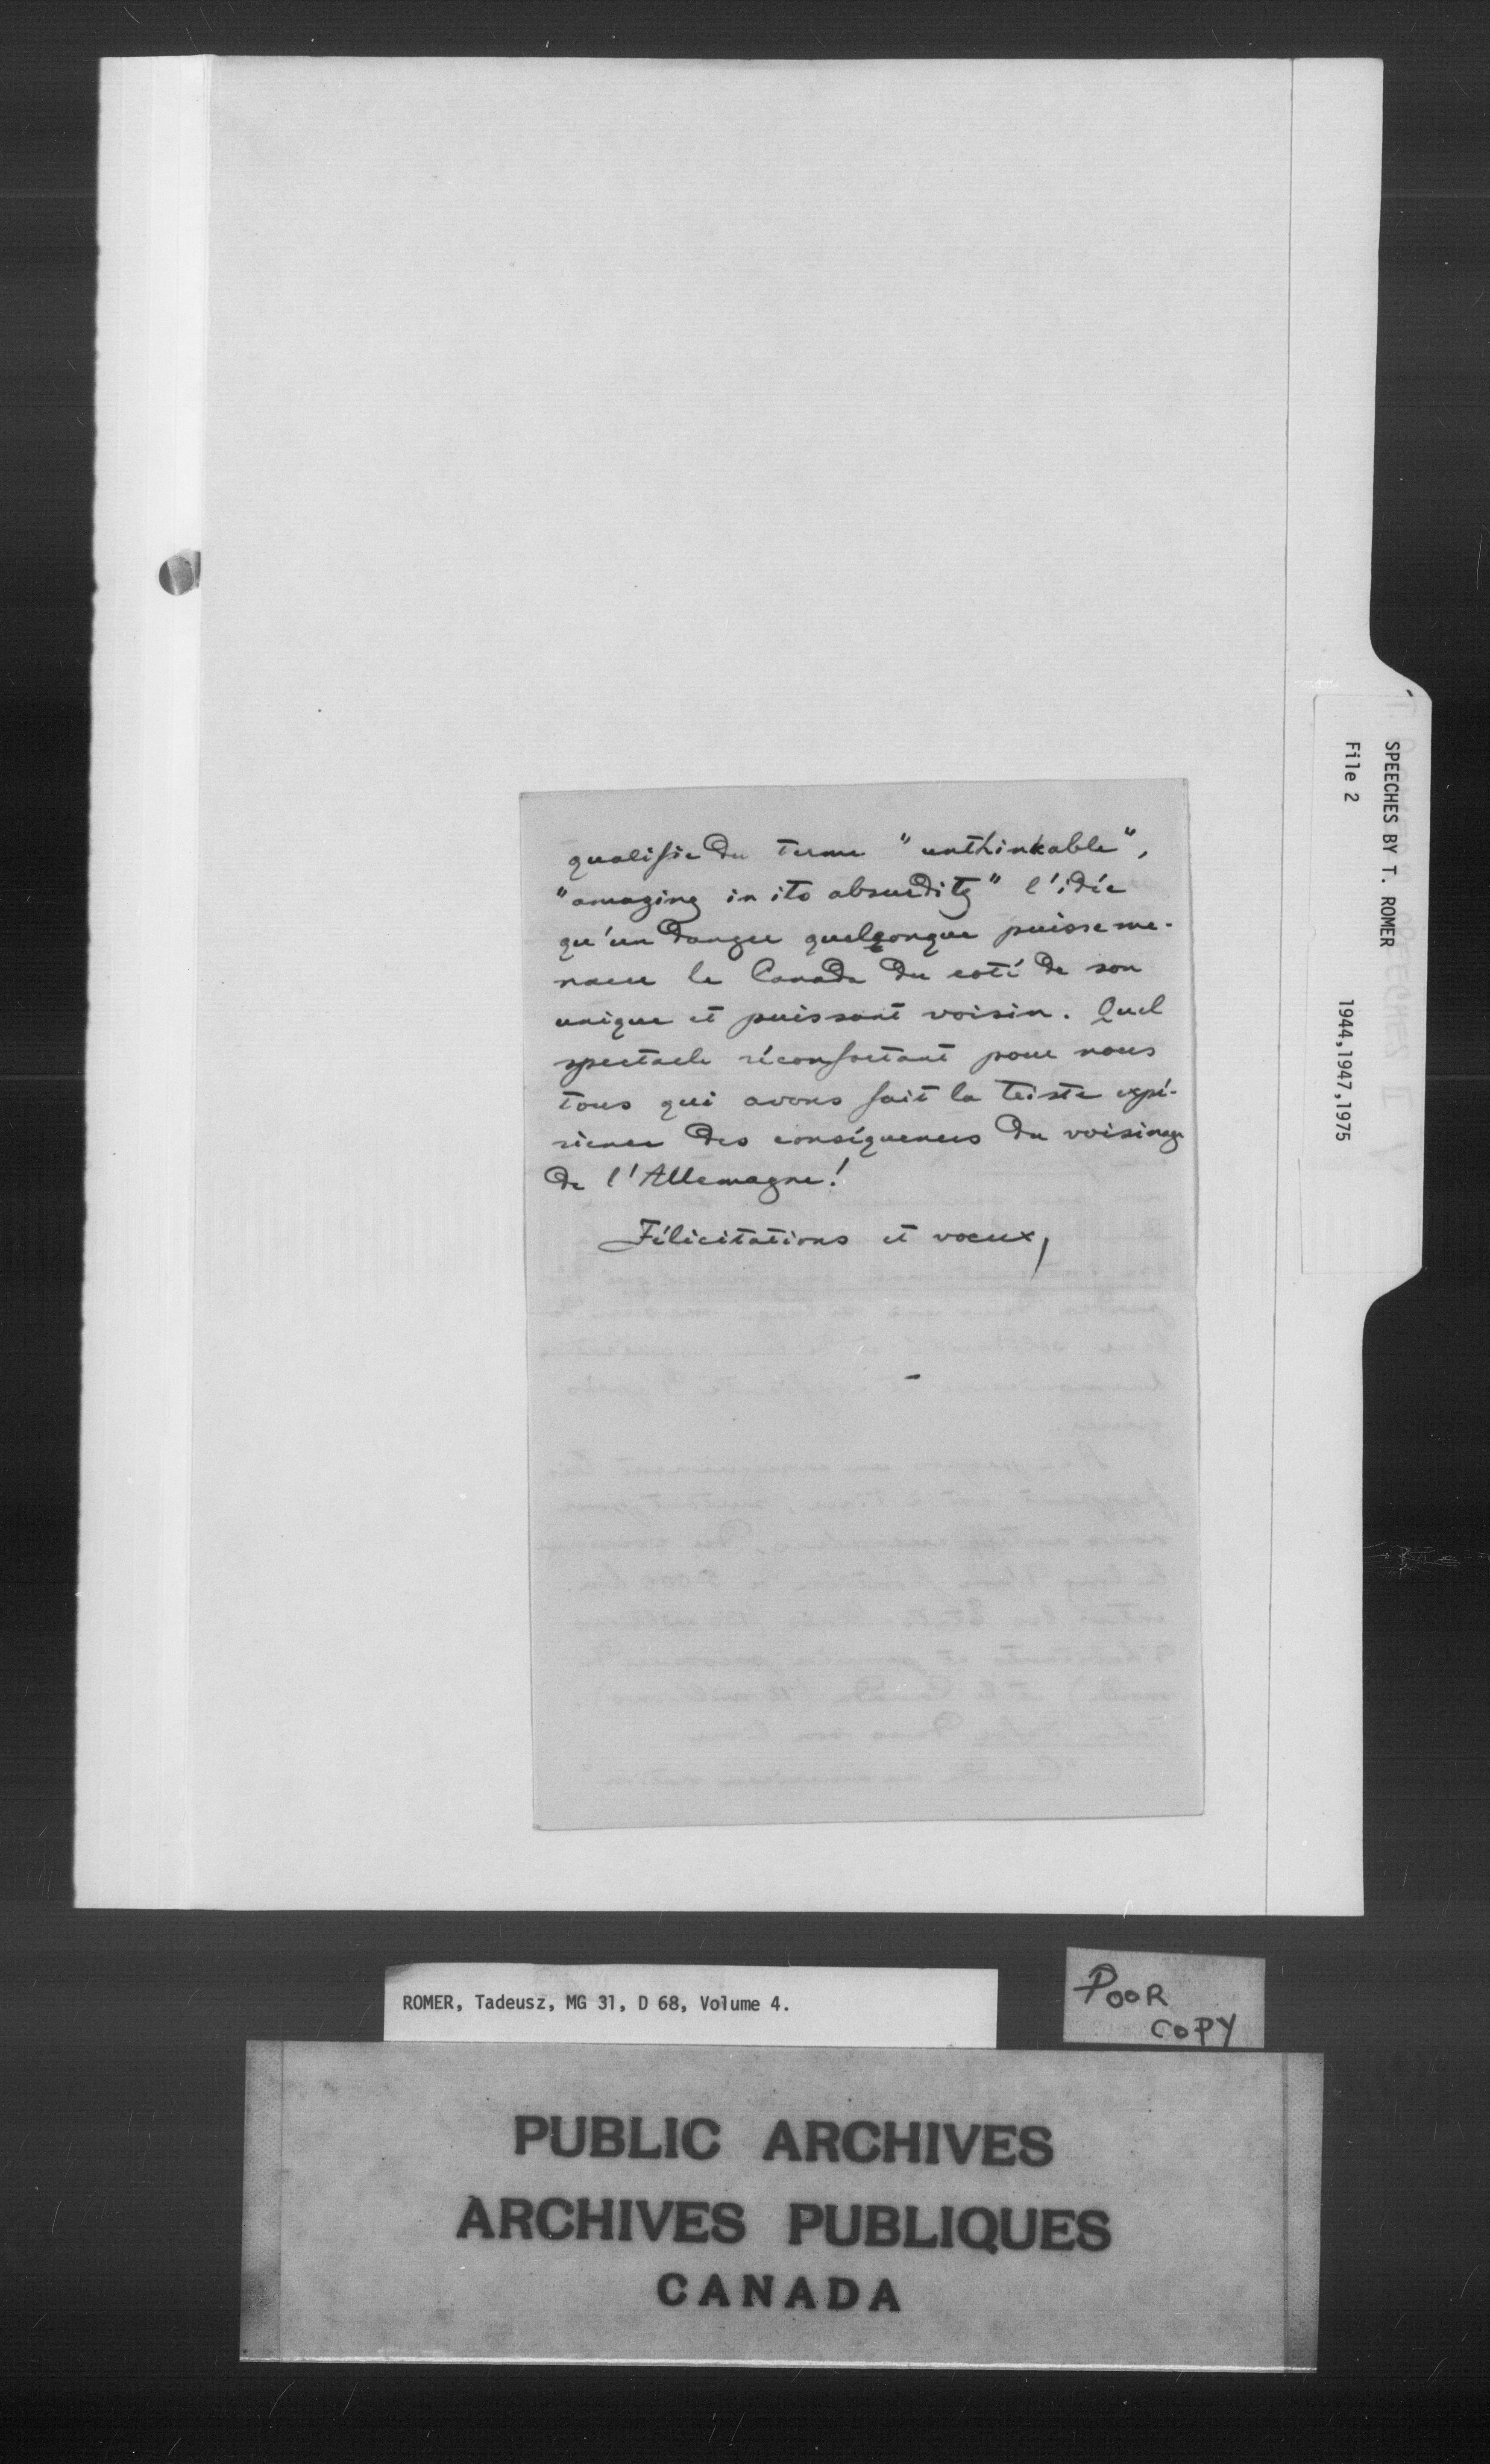 qualifie du terme "unthinkable",
"amazing in its absurdity" l'idée
qu'un danger quelqonque puisse me-
nacer le Canada du coté de son
unique et puissant voisin. Quel
spectacle réconfortant pour nous
tous qui avons fait la triste expé-
rience des conséquences du voisinage
de l'Allemagne!
Félicitations et voeux,
SPEECHES BY T. ROMER
File 2 1944,1947,1975
ROMER, Tadeusz, MG 31, D 68, Volume 4.
POOR
COPY
PUBLIC ARCHIVES
ARCHIVES PUBLIQUES
CANADA